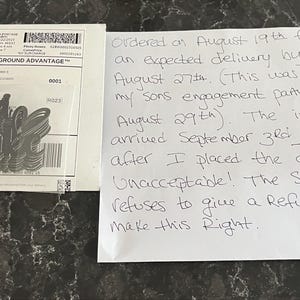 GROUND ADVANTAGE™
0001
Ordered on August 19th f
an expected delivery bu
August 27th. (This was
my sons engagement part
August 29th). The i
arrived September 3rd
after I placed the o
Unacceptable! The S
refuses to give a Refu
make this Right.